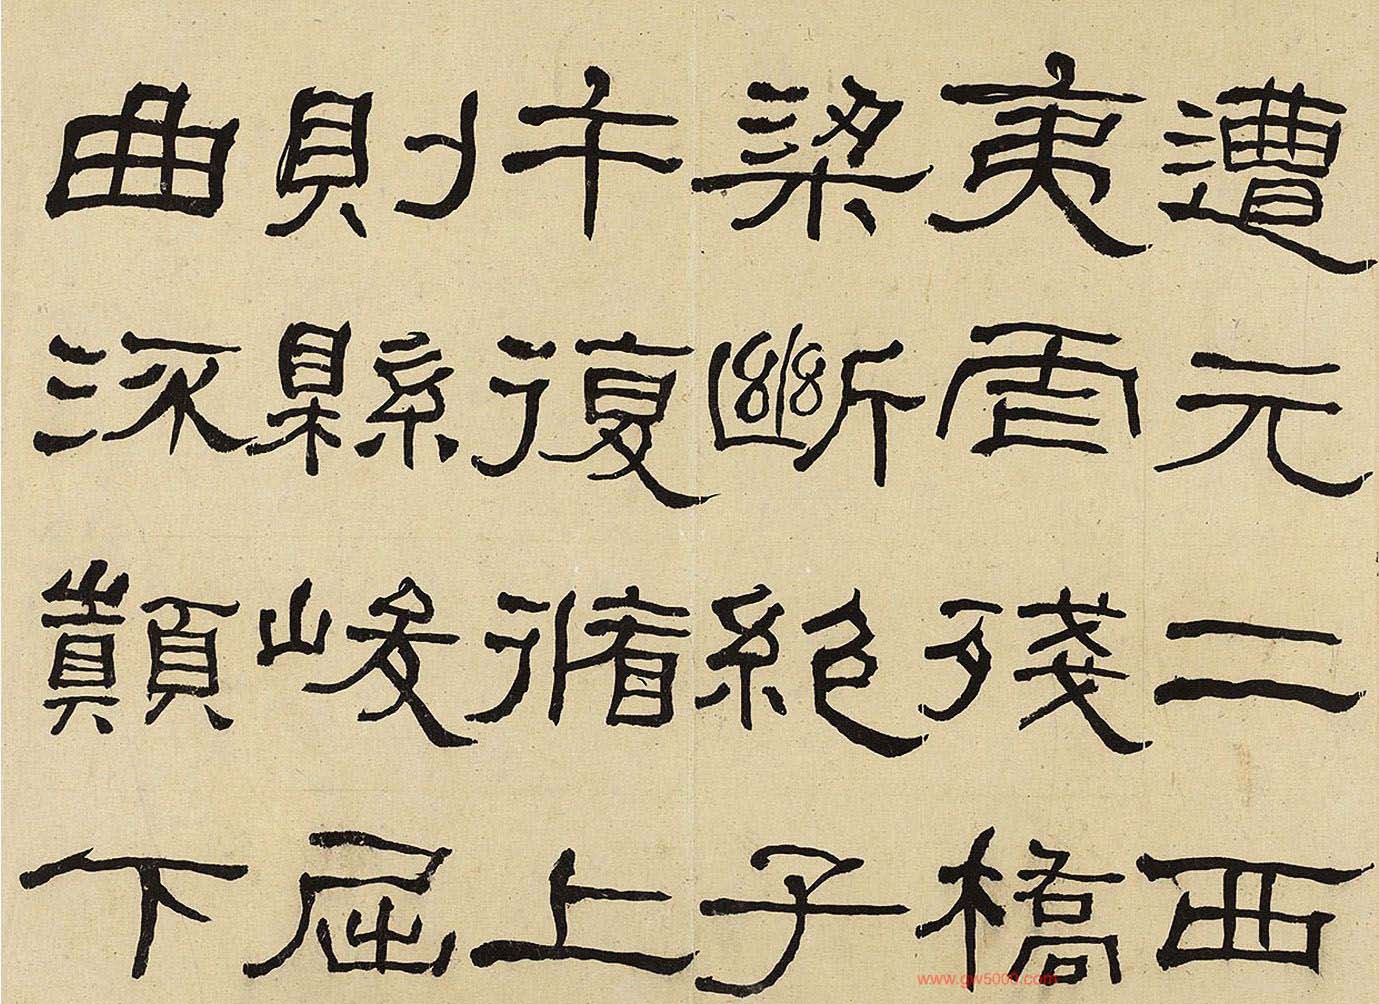 遭元二西
夷虐殘橋
梁斷絕子
午復循上
則縣峻屈
曲流巔下
www.gw5000.com